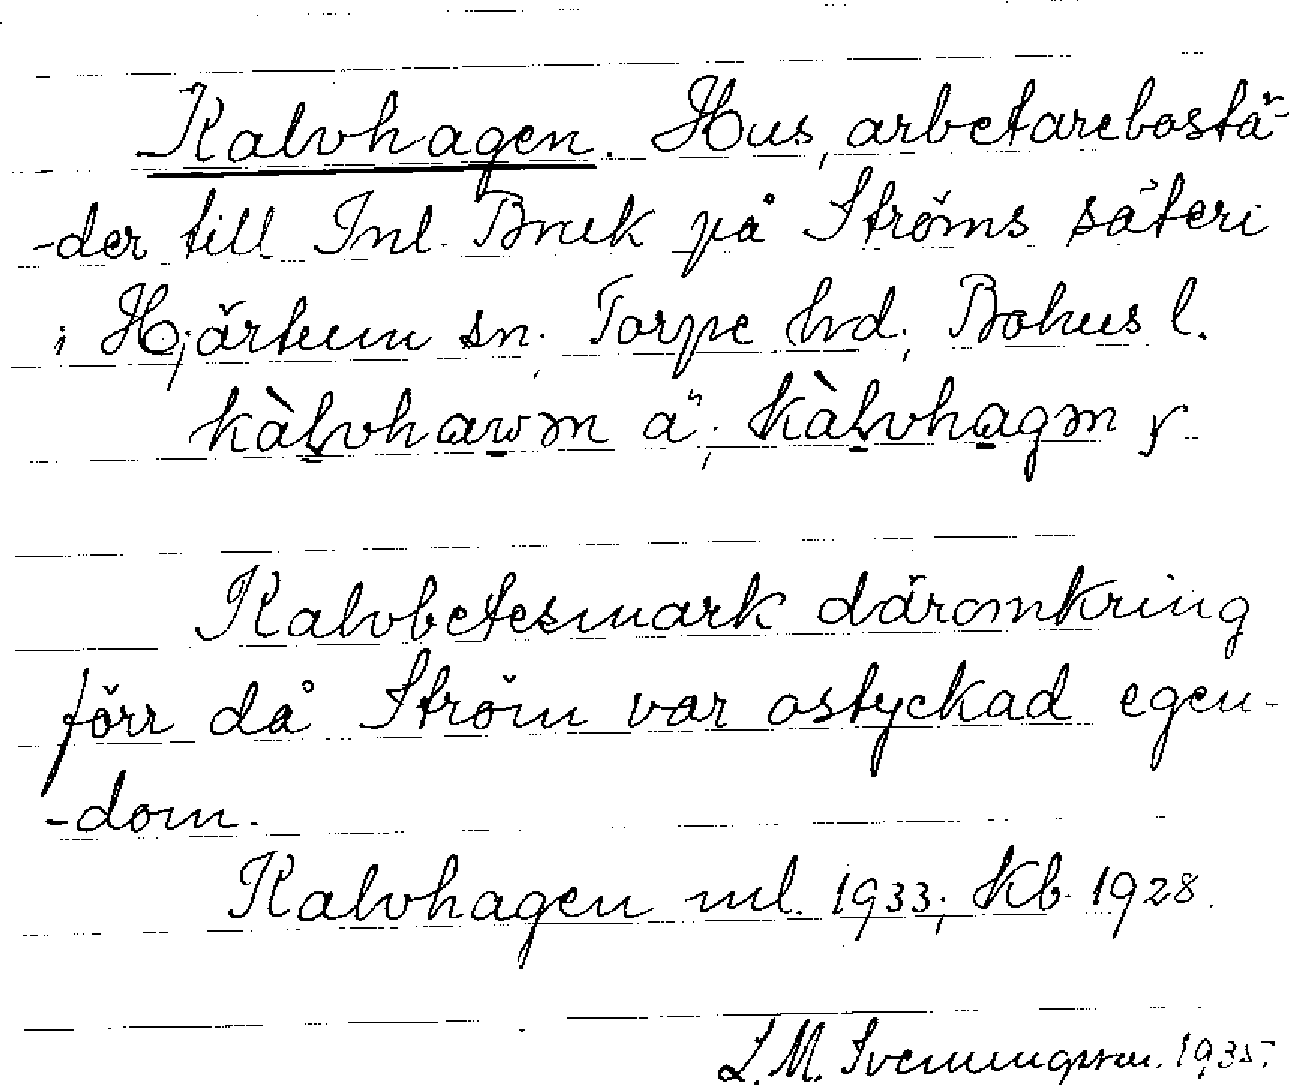 Kalvhagen. Hus, arbetarebostä-
-der till Inl. Bruk på Ströms säteri
i Hjärtum sn; Torpe hd; Bohus l.
kàlvhawm ä; kàlvhagm y.
Kalvbetesmark däromkring
förr då Ström var ostyckad egen-
-dom.
Kalvhagen ml. 1933; Kb. 1928.
L. M. Svenungsson. 1935.